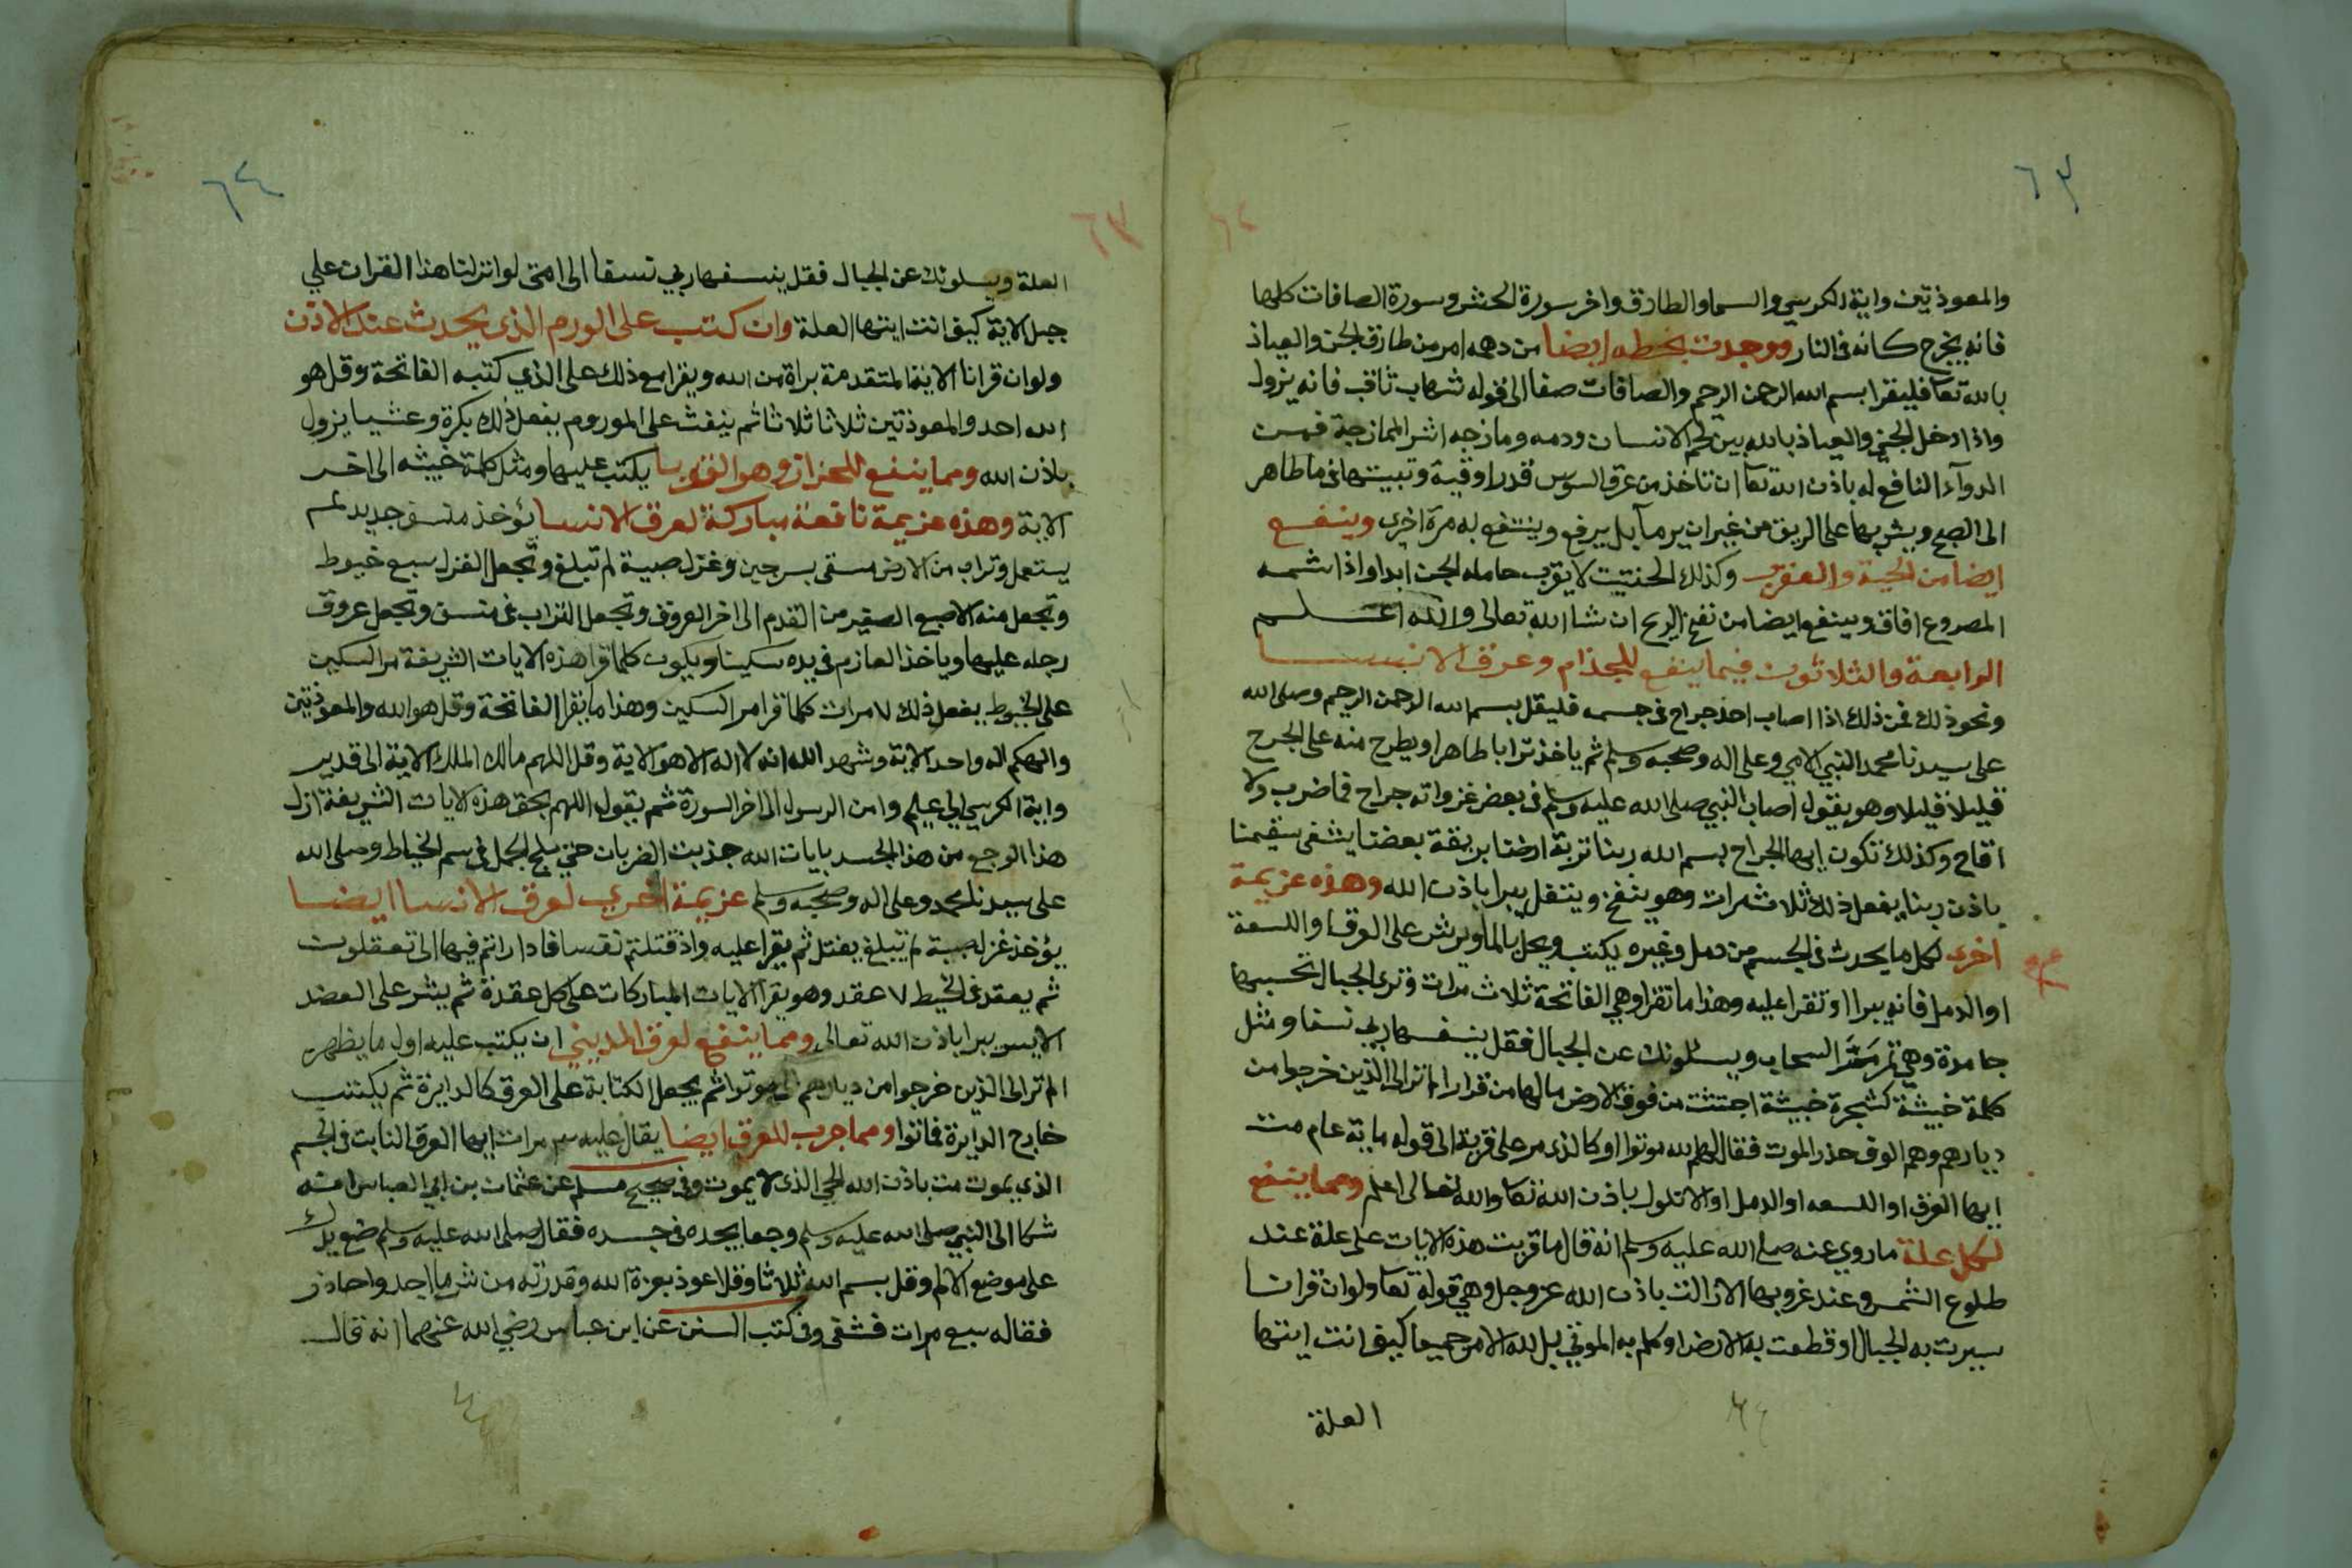 ٦٣
والمعوذتين واية الكرسي والسما والطارق واخر سورة الحشر وسورة الصافات كلها
فانه يخرج كانه في النار ووجدت بخطه ايضا من دهمه امر من طارق الجن والعياذ
بالله تعا فليقرا بسم الله الرحمن الرحيم والصافات صفا الى قوله شهاب ثاقب فانه يزول
واذا دخل الجني والعياذ بالله بين لحم الانسان ودمه ومازجه اشر الممازجة فمن
الدوآء النافع له باذن الله تعا ان تاخذ من عرق السوس قدر اوقية وتبيتها في ما طاهر
الى الصبح ويشربها على الريق من غير ان يرما بل يرفع وينتفع به مرة اخرى وينفع
ايضا من الحية والعقرب وكذلك الحنتيت لا يقرب حامله الجن ابدا واذا شمه
المصروع افاق وينفع ايضا من نفخ الريح ان شا الله تعالى والله اعلم
الرابعة والثلاثون فيما ينفع للجذام وعرق الانسا
ونحو ذلك فمن ذلك اذا اصاب احد جراح في جسمه فليقل بسم الله الرحمن الرحيم وصلى الله
على سيدنا محمد النبي الامي وعلى اله وصحبه وسلم ثم ياخذ ترابا طاهرا ويطرح منه على الجرح
قليلا قليلا وهو يقول اصاب النبي صلى الله عليه وسلم في بعض غزواته جراح فما ضرب ولا
اقاح وكذلك تكون ايها الجراح بسم الله ربنا تربة ارضنا بريقة بعضنا يشفى سقيمنا
باذن ربنا يفعل ذلك ثلاث مرات وهو ينفخ ويتفل يبرا باذن الله وهذه عزيمة
اخرى لكل ما يحدث في الجسم من دمل وغيره يكتب ويحل بالما ويرش على العرق او اللسعة
او الدمل فانه يبرا او تقرا عليه وهذا ما تقرا وهي الفاتحة ثلاث مرات وترى الجبال تحسبها
جامدة وهي تمر مر السحاب ويسلونك عن الجبال فقل ينسفها ربي نسفا ومثل
كلمة خبيثة كشجرة خبيثة اجتثت من فوق الارض مالها من قرار الم تر الى الذين خرجوا من
ديارهم وهم الوف حذر الموت فقال لهم الله موتوا او كالذي مر على قرية الى قوله ماية عام مت
ايها العرق او اللسعه او الدمل او الاتلول باذن الله تعا والله تعالى اعلم ومما ينفع
لكل علة ما روي عنه صلى الله عليه وسلم انه قال ما قريت هذه الايات على علة عند
طلوع الشمس وعند غروبها الا زالت باذن الله عز وجل وهي قوله تعا ولو ان قرانا
سيرت به الجبال او قطعت به الارض او كلم به الموتى بل لله الامر جميعا كيف انت ايتها
العلة
٦٤
العلة ويسلونك عن الجبال فقل ينسفها ربي نسفا الى امتى لو انزلنا هذا القران على
جبل الاية كيف انت ايتها العلة وان كتب على الورم الذي يحدث عند الاذن
ولو ان قرانا الاية المتقدمة براة من الله ويقرا مع ذلك على الذي كتبه الفاتحة وقل هو
الله احد والمعوذتين ثلاثا ثلاثا ثم ينفث على الموروم يفعل ذلك بكرة وعشيا يزول
باذن الله ومما ينفع للحزاز وهو القوبا يكتب عليها ومثل كلمة خبيثه الى اخر
الاية وهذه عزيمة نافعة مباركة لعرق الانسا يؤخذ جديد لم
يستعمل وتراب من الارض مسقى بسرجين وغزل صبية لم تبلغ وتجعل الغزل سبع خيوط
وتجعل منه الاصبع الصغير من القدم الى اخر العروق وتجعل التراب في وتجعل عروق
رجله عليها وياخذ العازم في يده سكينا ويكون كلما قرا هذه الايات الشريفة مر السكين
على الخيوط يفعل ذلك ٧ مرات كلما قرا مر السكين وهذا ما يقرا الفاتحة وقل هو الله والمعوذتين
والهكم اله واحد الاية وشهد الله انه لا اله الا هو الاية وقل اللهم مالك الملك الاية الى قدير
واية الكرسي الى عليم وامن الرسول الى اخر السورة ثم يقول اللهم بحق هذه الايات الشريفة ازل
هذا الوجع من هذا الجسد بايات الله جذبت الضربان حتى يلج الجمل في سم الخياط وصلى الله
على سيدنا محمد وعلى اله وصحبه وسلم عزيمة اخرى لعرق الانسا ايضا
يؤخذ غزل صبية لم تبلغ يفتل ثم يقرا عليه واذ قتلتم نفسا فادارأتم فيها الى تعقلون
ثم يعقد في الخيط ٧ عقد وهو يقرا الايات المباركات على كل عقدة ثم يشد على العضد
الايسر يبرا باذن الله تعالى ومما ينفع لعرق المديني ان يكتب عليه اول ما يظهر
الم تر الى الذين خرجوا من ديارهم الى موتوا ثم يجعل الكتابة على العرق كالدايرة ثم يكتب
خارج الدايرة فماتوا ومما جرب للعرق ايضا يقال عليه ٣ مرات ايها العرق النابت في الجسم
الذي يموت مت باذن الله الحي الذي لا يموت وفي صحيح مسلم عن عثمان بن ابي العباس انه
شكا الى النبي صلى الله عليه وسلم وجعا يجده في جسده فقال صلى الله عليه وسلم ضع يدك
على موضع الالم وقل بسم الله ثلاثا وقل اعوذ بعزة الله وقدرته من شر ما اجد واحاذر
فقاله سبع مرات فشفى وفي كتب السنن عن ابن عباس رضي الله عنهما انه قال